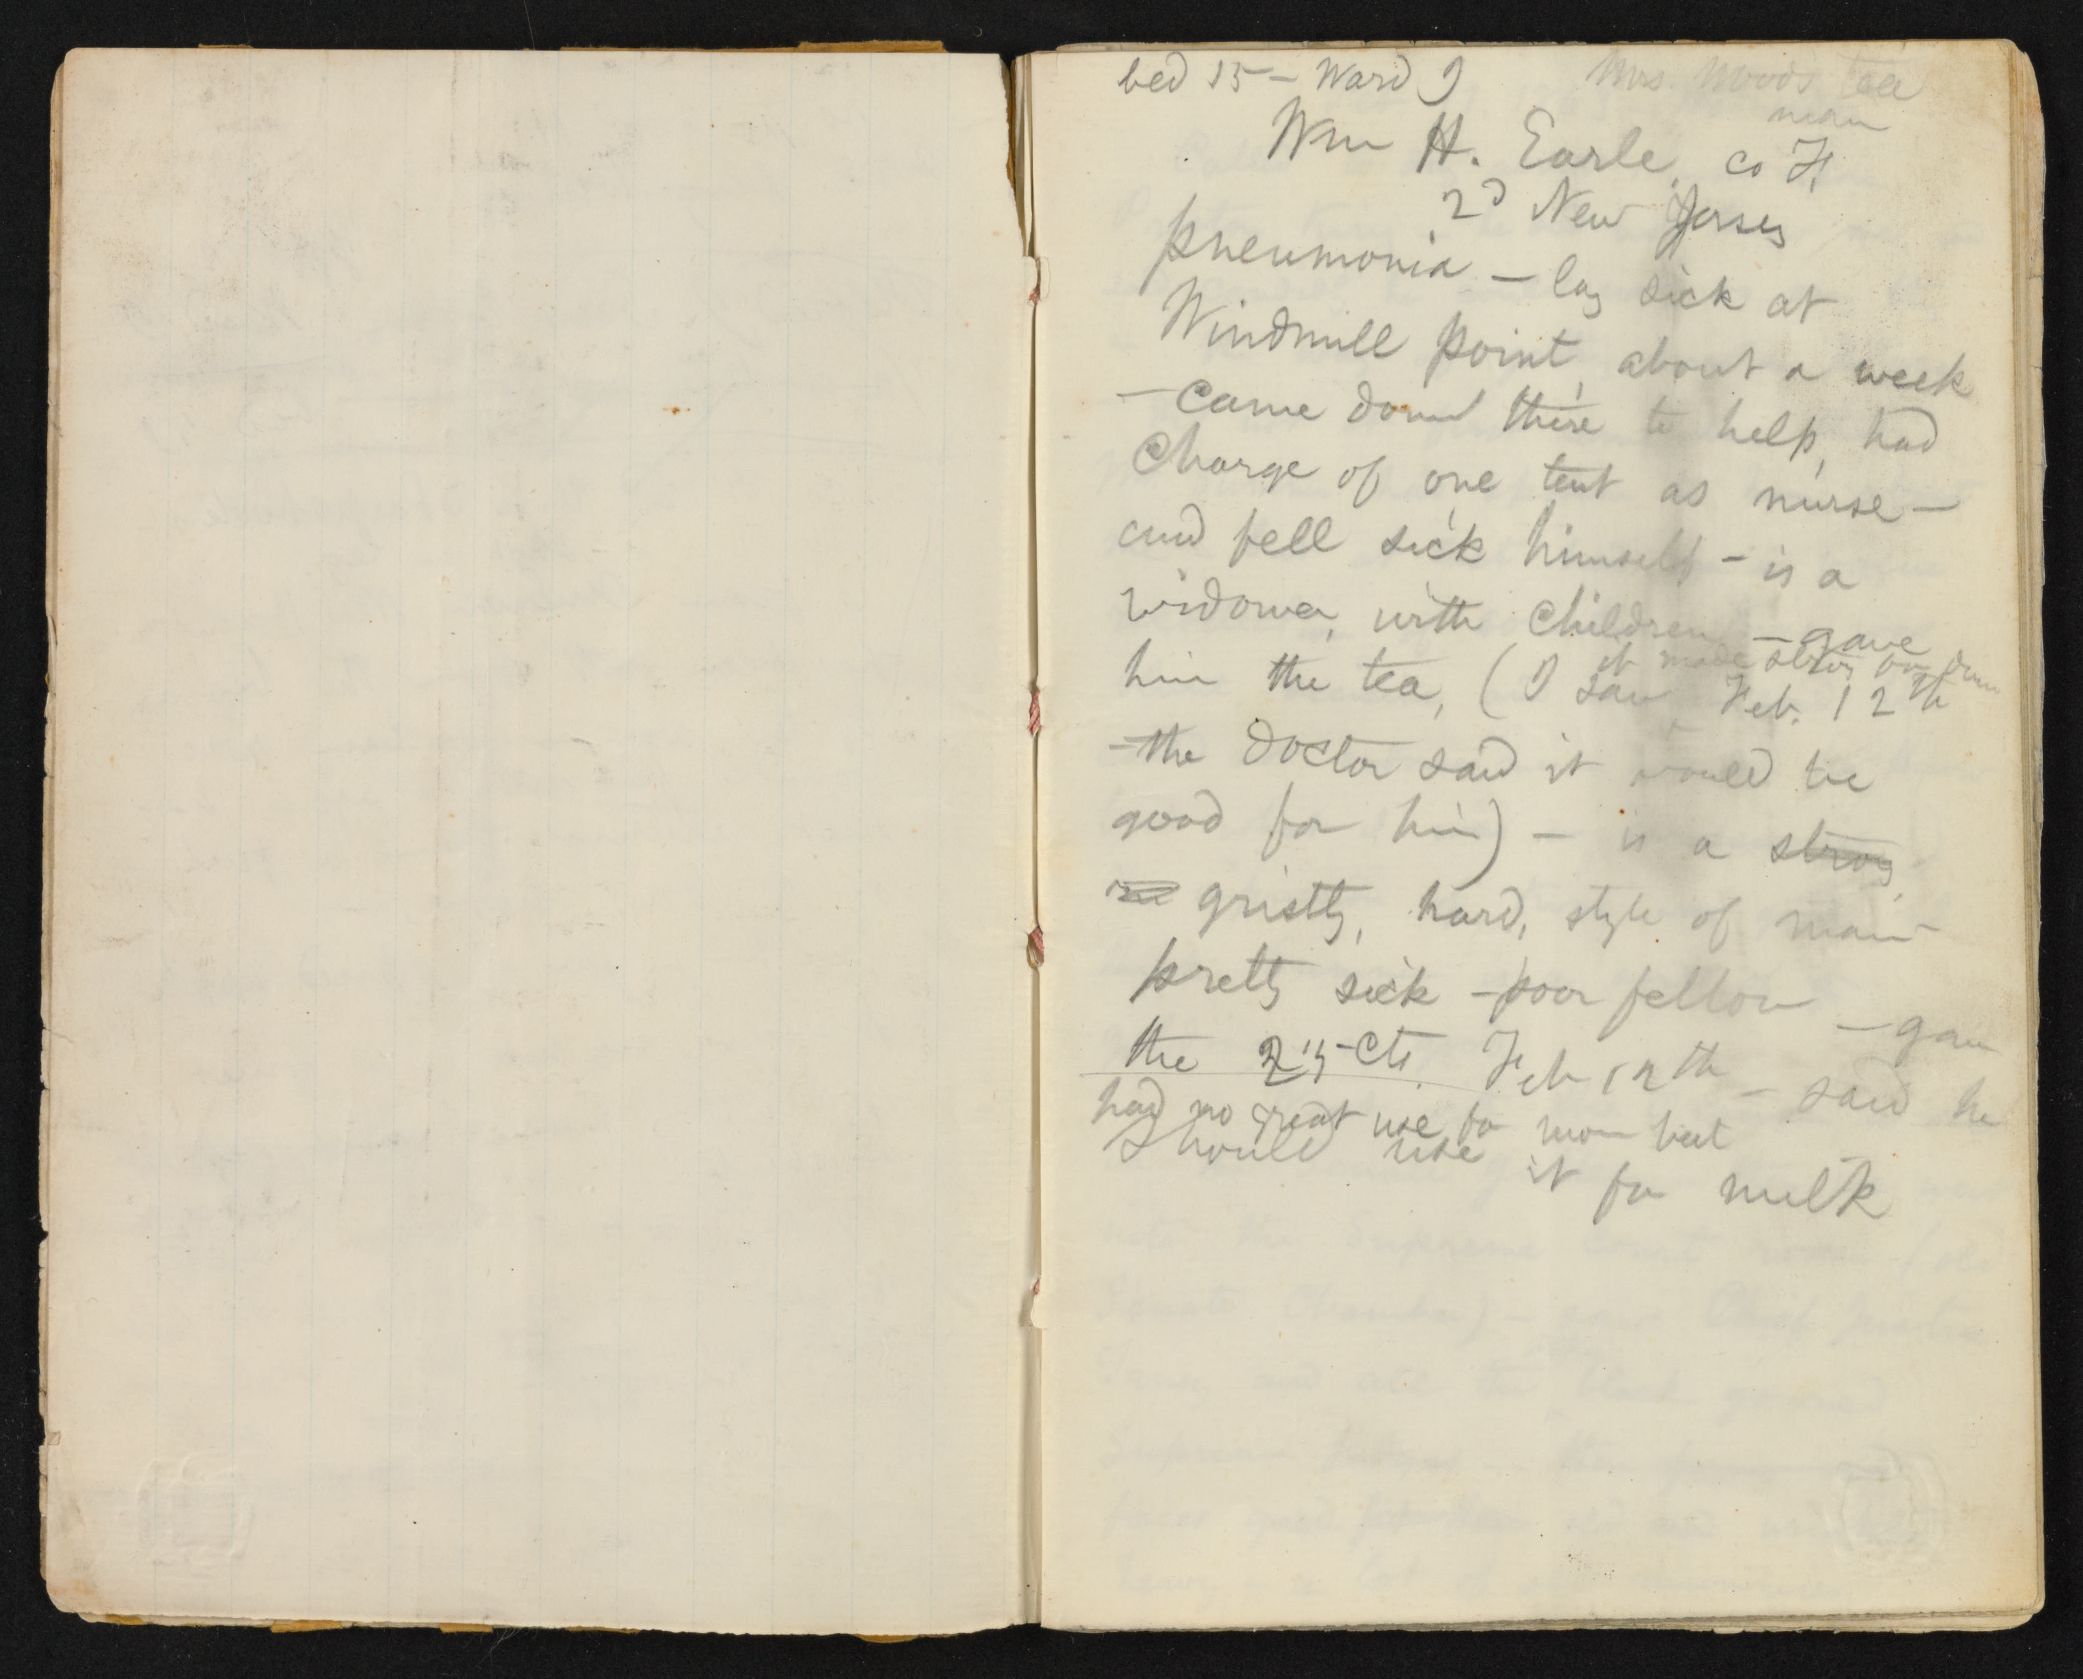 bed 15 – Ward J Mrs. Wood's tea
man
Wm H. Earle, co F.
2d New Jersey
pneumonia – lay sick at
Windmill point, about a week
– came down there to help, had
charge of one tent as nurse –
and fell sick himself – is a
widower, with children – gave
it made strong &
him the tea, (I saw Feb. 12th
– the doctor said it would be
good for him) – is a strong,
gristly, hard, style of man
pretty sick – poor fellow – gave
the 25 cts. Feb 12th – said he
had no great use for mon but
should use it for milk